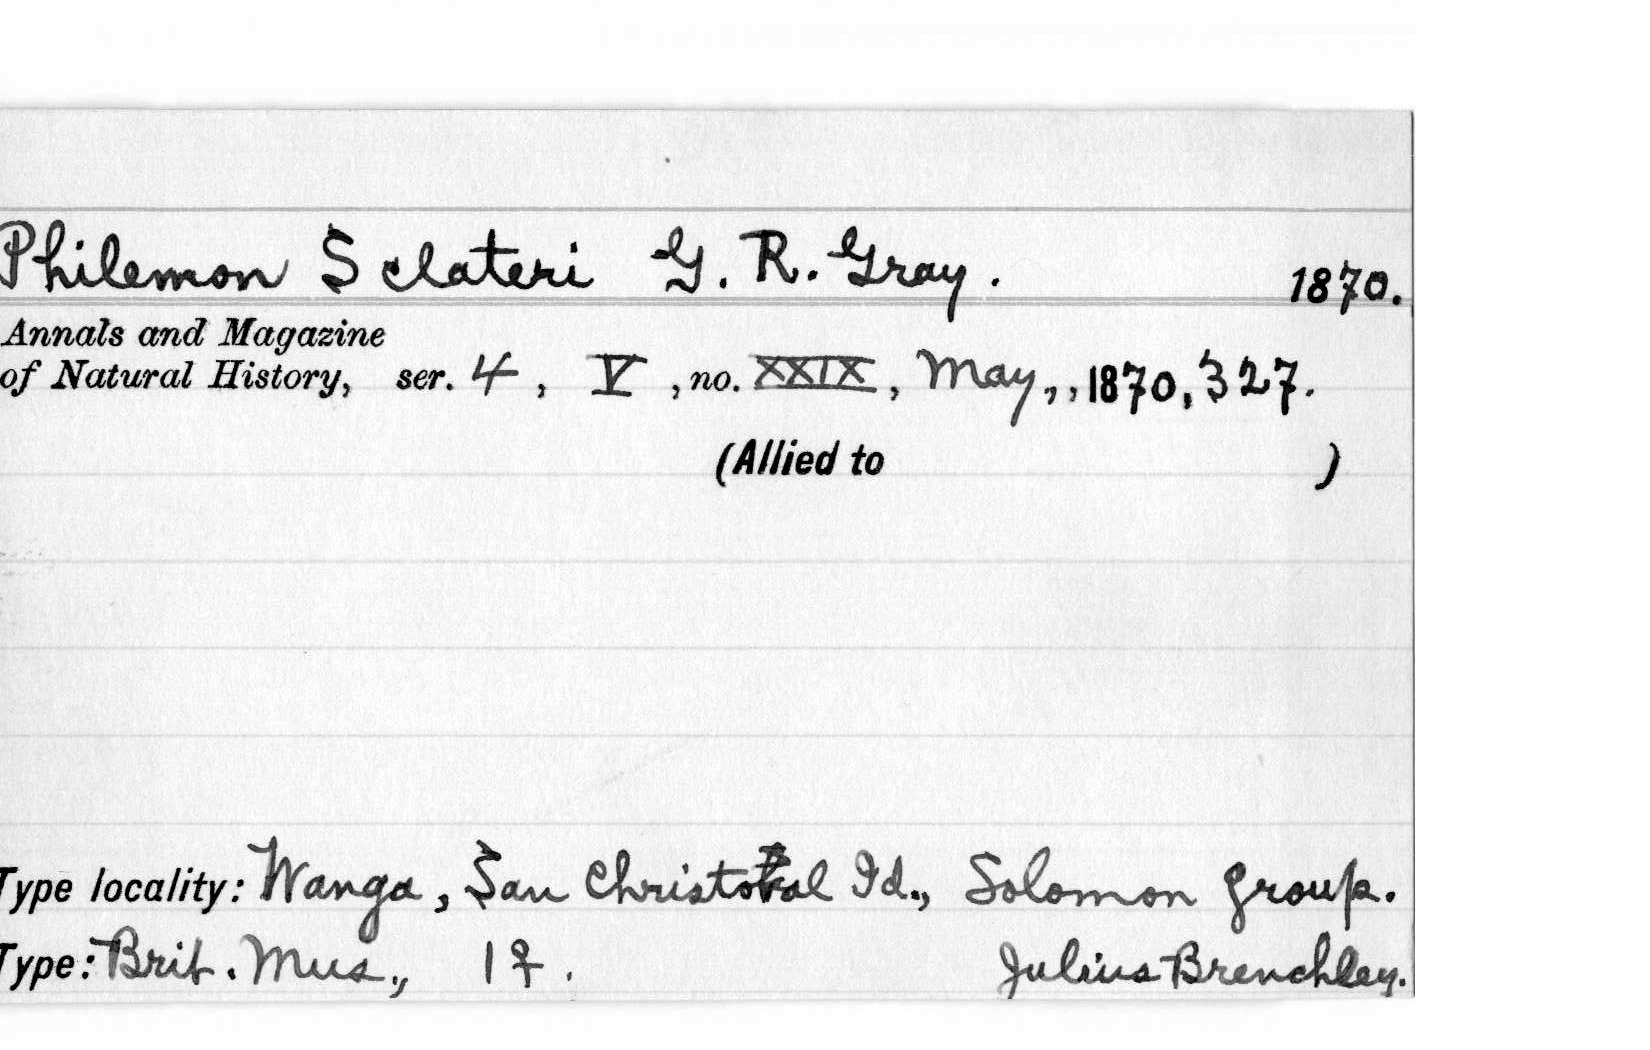 Philemon Sclateri G. R. Gray. 1870.
Annals and Magazine
of Natural History, ser. 4, V, no. XXIX, May,, 1870, 327.
(Allied to )
Type locality: Wanga, San Christoval Id., Solomon Group.
Type: Brit. Mus., 1♀. Julius Brenchley.